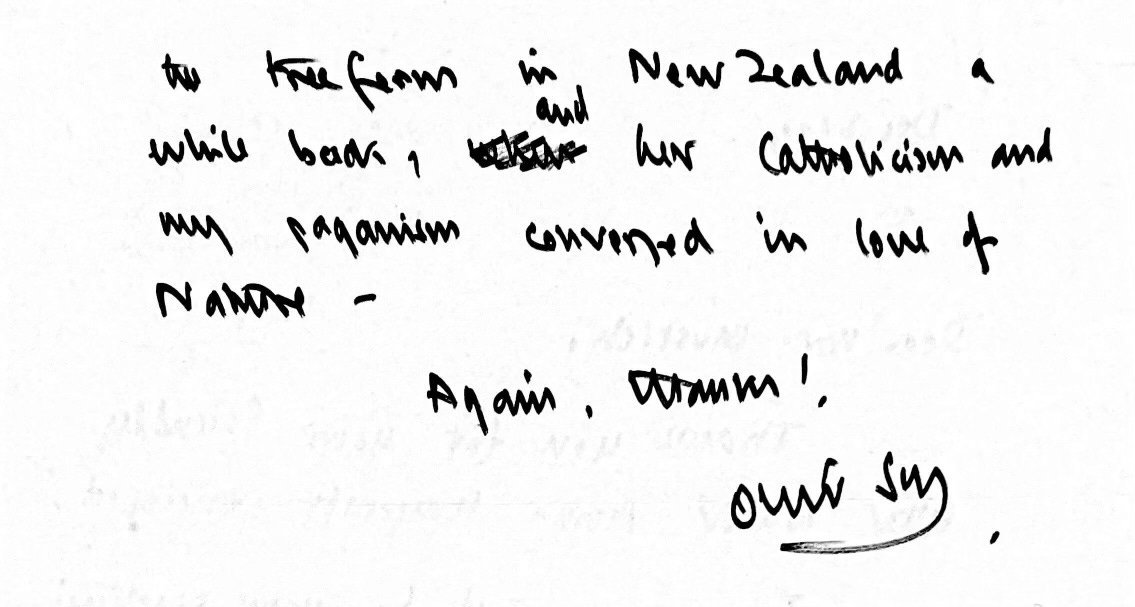 the tree ferns in New Zealand a
and
while back, her Catholicism and
my paganism converged in love of
Nature -
Again, thanks!